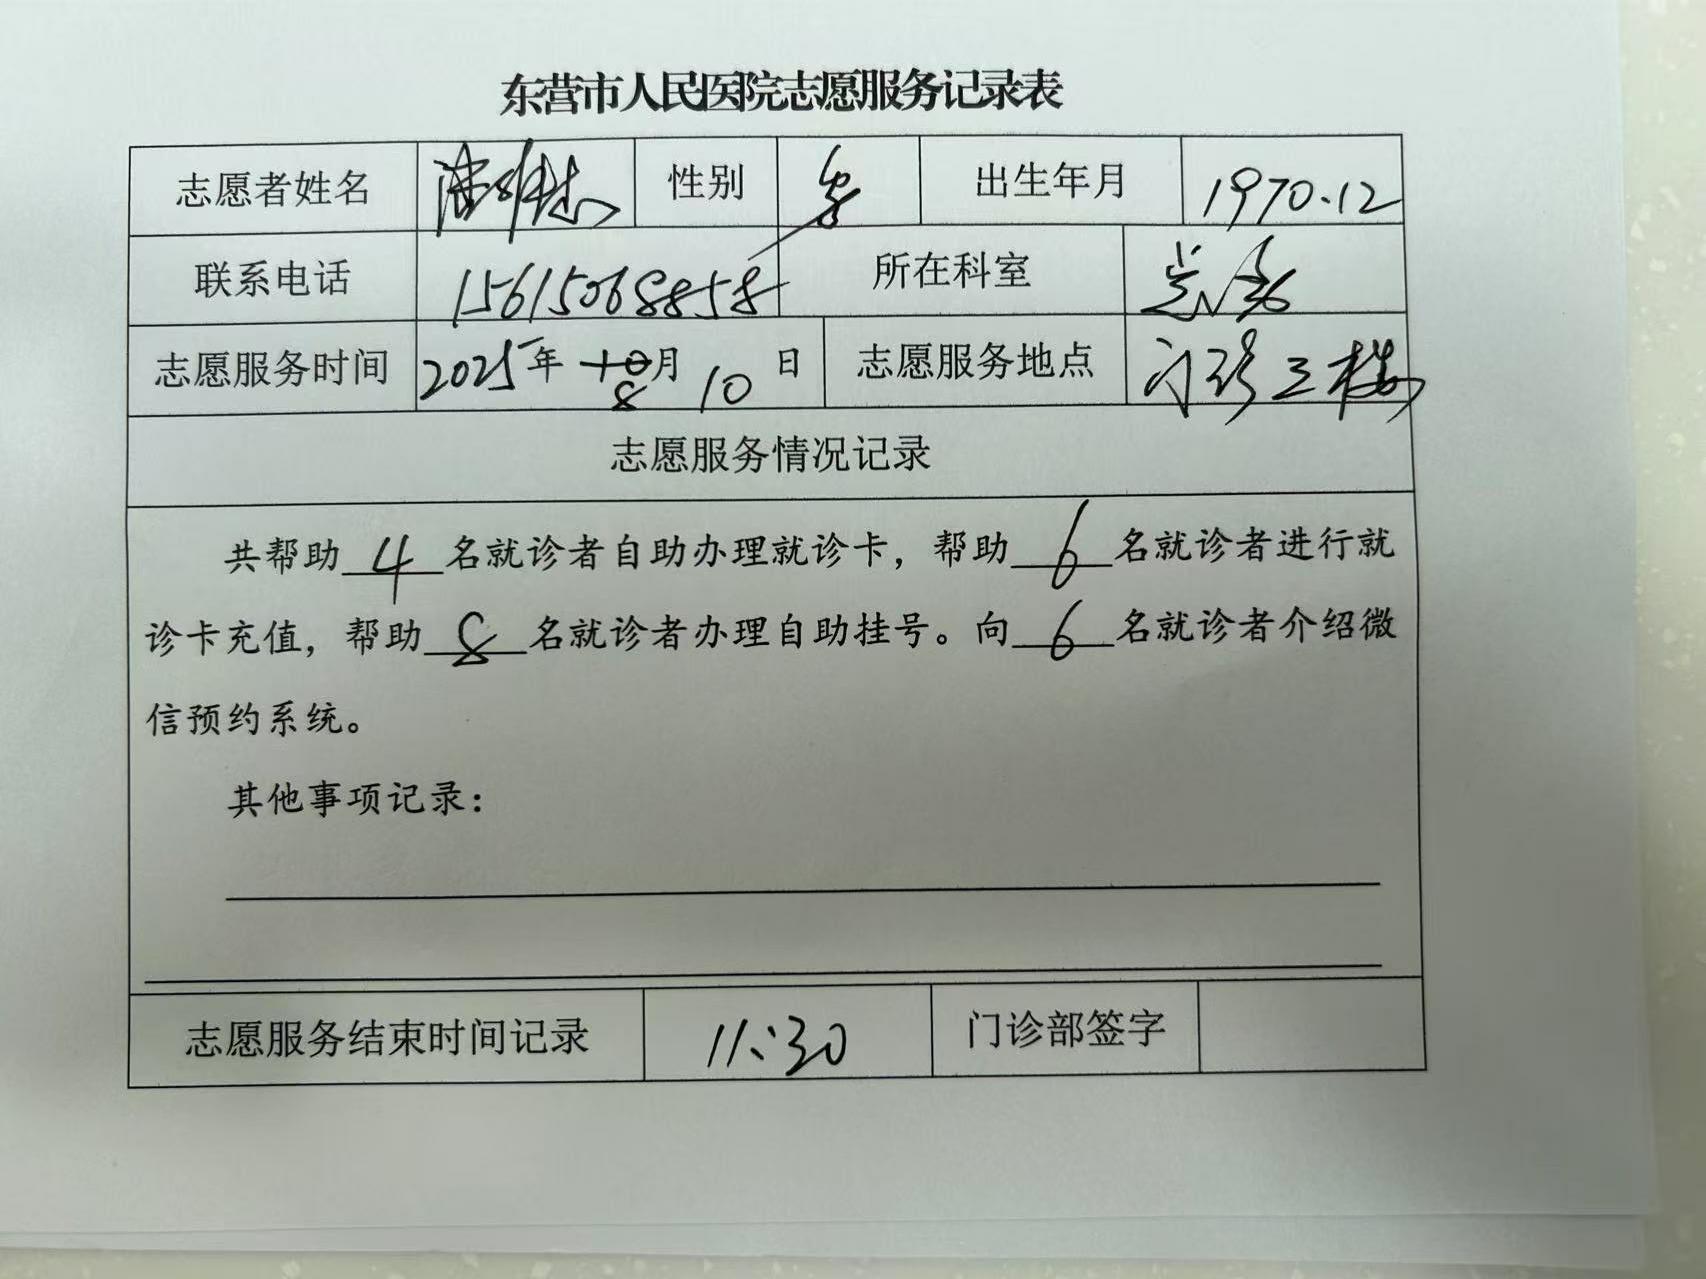 东营市人民医院志愿服务记录表
志愿者姓名 性别 男 出生年月 1970.12
联系电话 15615068858 所在科室
志愿服务时间 2025年 10月 8 10日 志愿服务地点 门诊三楼
志愿服务情况记录
共帮助4名就诊者自助办理就诊卡，帮助6名就诊者进行就
诊卡充值，帮助8名就诊者办理自助挂号。向6名就诊者介绍微
信预约系统。
其他事项记录：
志愿服务结束时间记录 11:30 门诊部签字